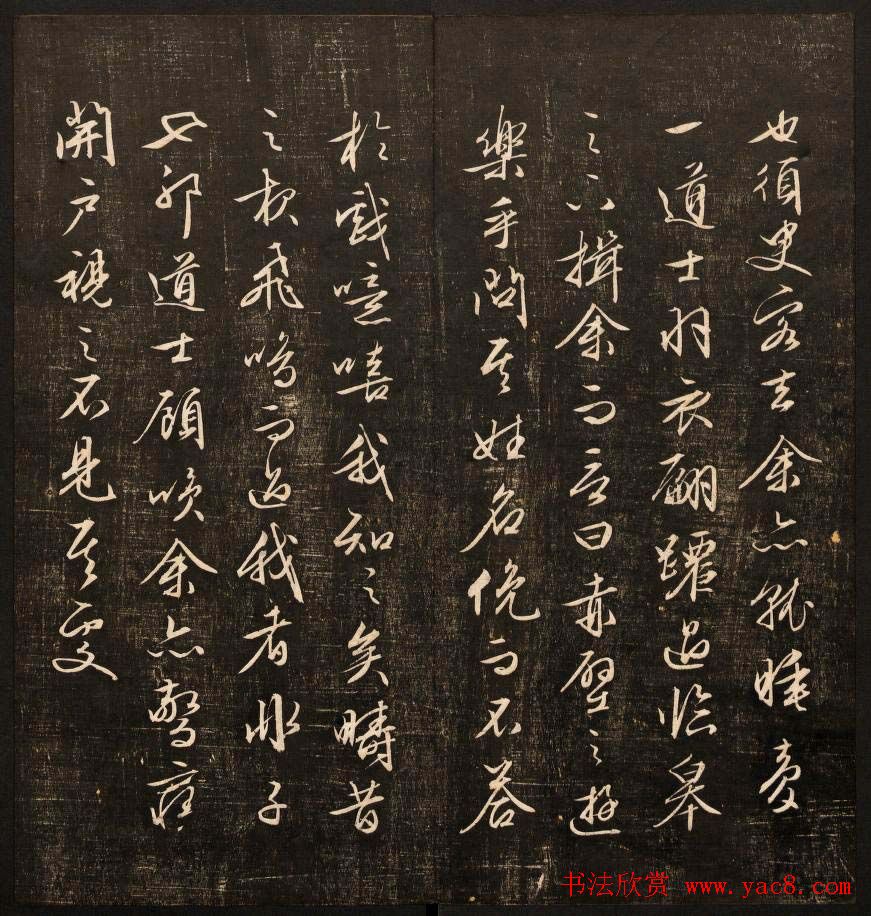 也須臾客去余亦就睡夢
一道士羽衣翩躚過臨皋
之下揖余而言曰赤壁之遊
樂乎問其姓名俛而不答
於戲噫嘻我知之矣疇昔
之夜飛鳴而過我者非子
也耶道士顧笑余亦驚寤
開戶視之不見其處
书法欣赏 www.yac8.com